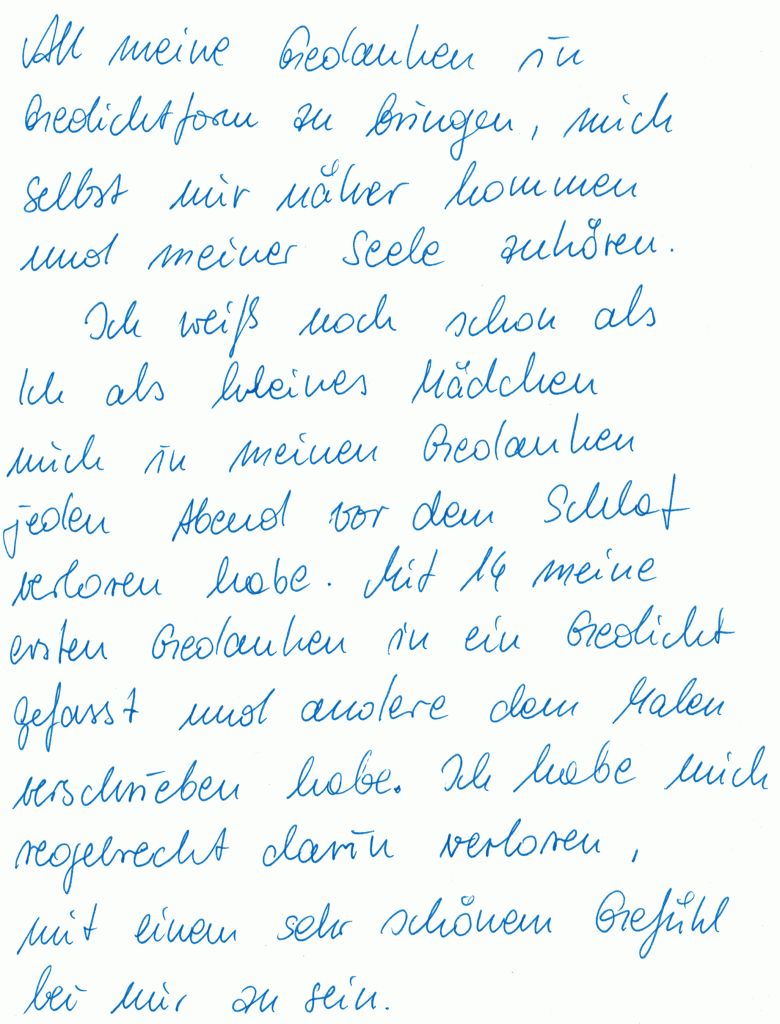 All meine Gedanken in
Gedichtform zu bringen, mich
selbst mir näher kommen
und meiner Seele zuhören.
Ich weiß noch schon als
Ich als kleines Mädchen
mich in meinen Gedanken
jeden Abend vor dem Schlaf
verloren habe. Mit 14 meine
ersten Gedanken in ein Gedicht
gefasst und andere dem Malen
verschrieben habe. Ich habe mich
regelrecht darin verloren,
mit einem sehr schönem Gefühl
bei mir zu sein.